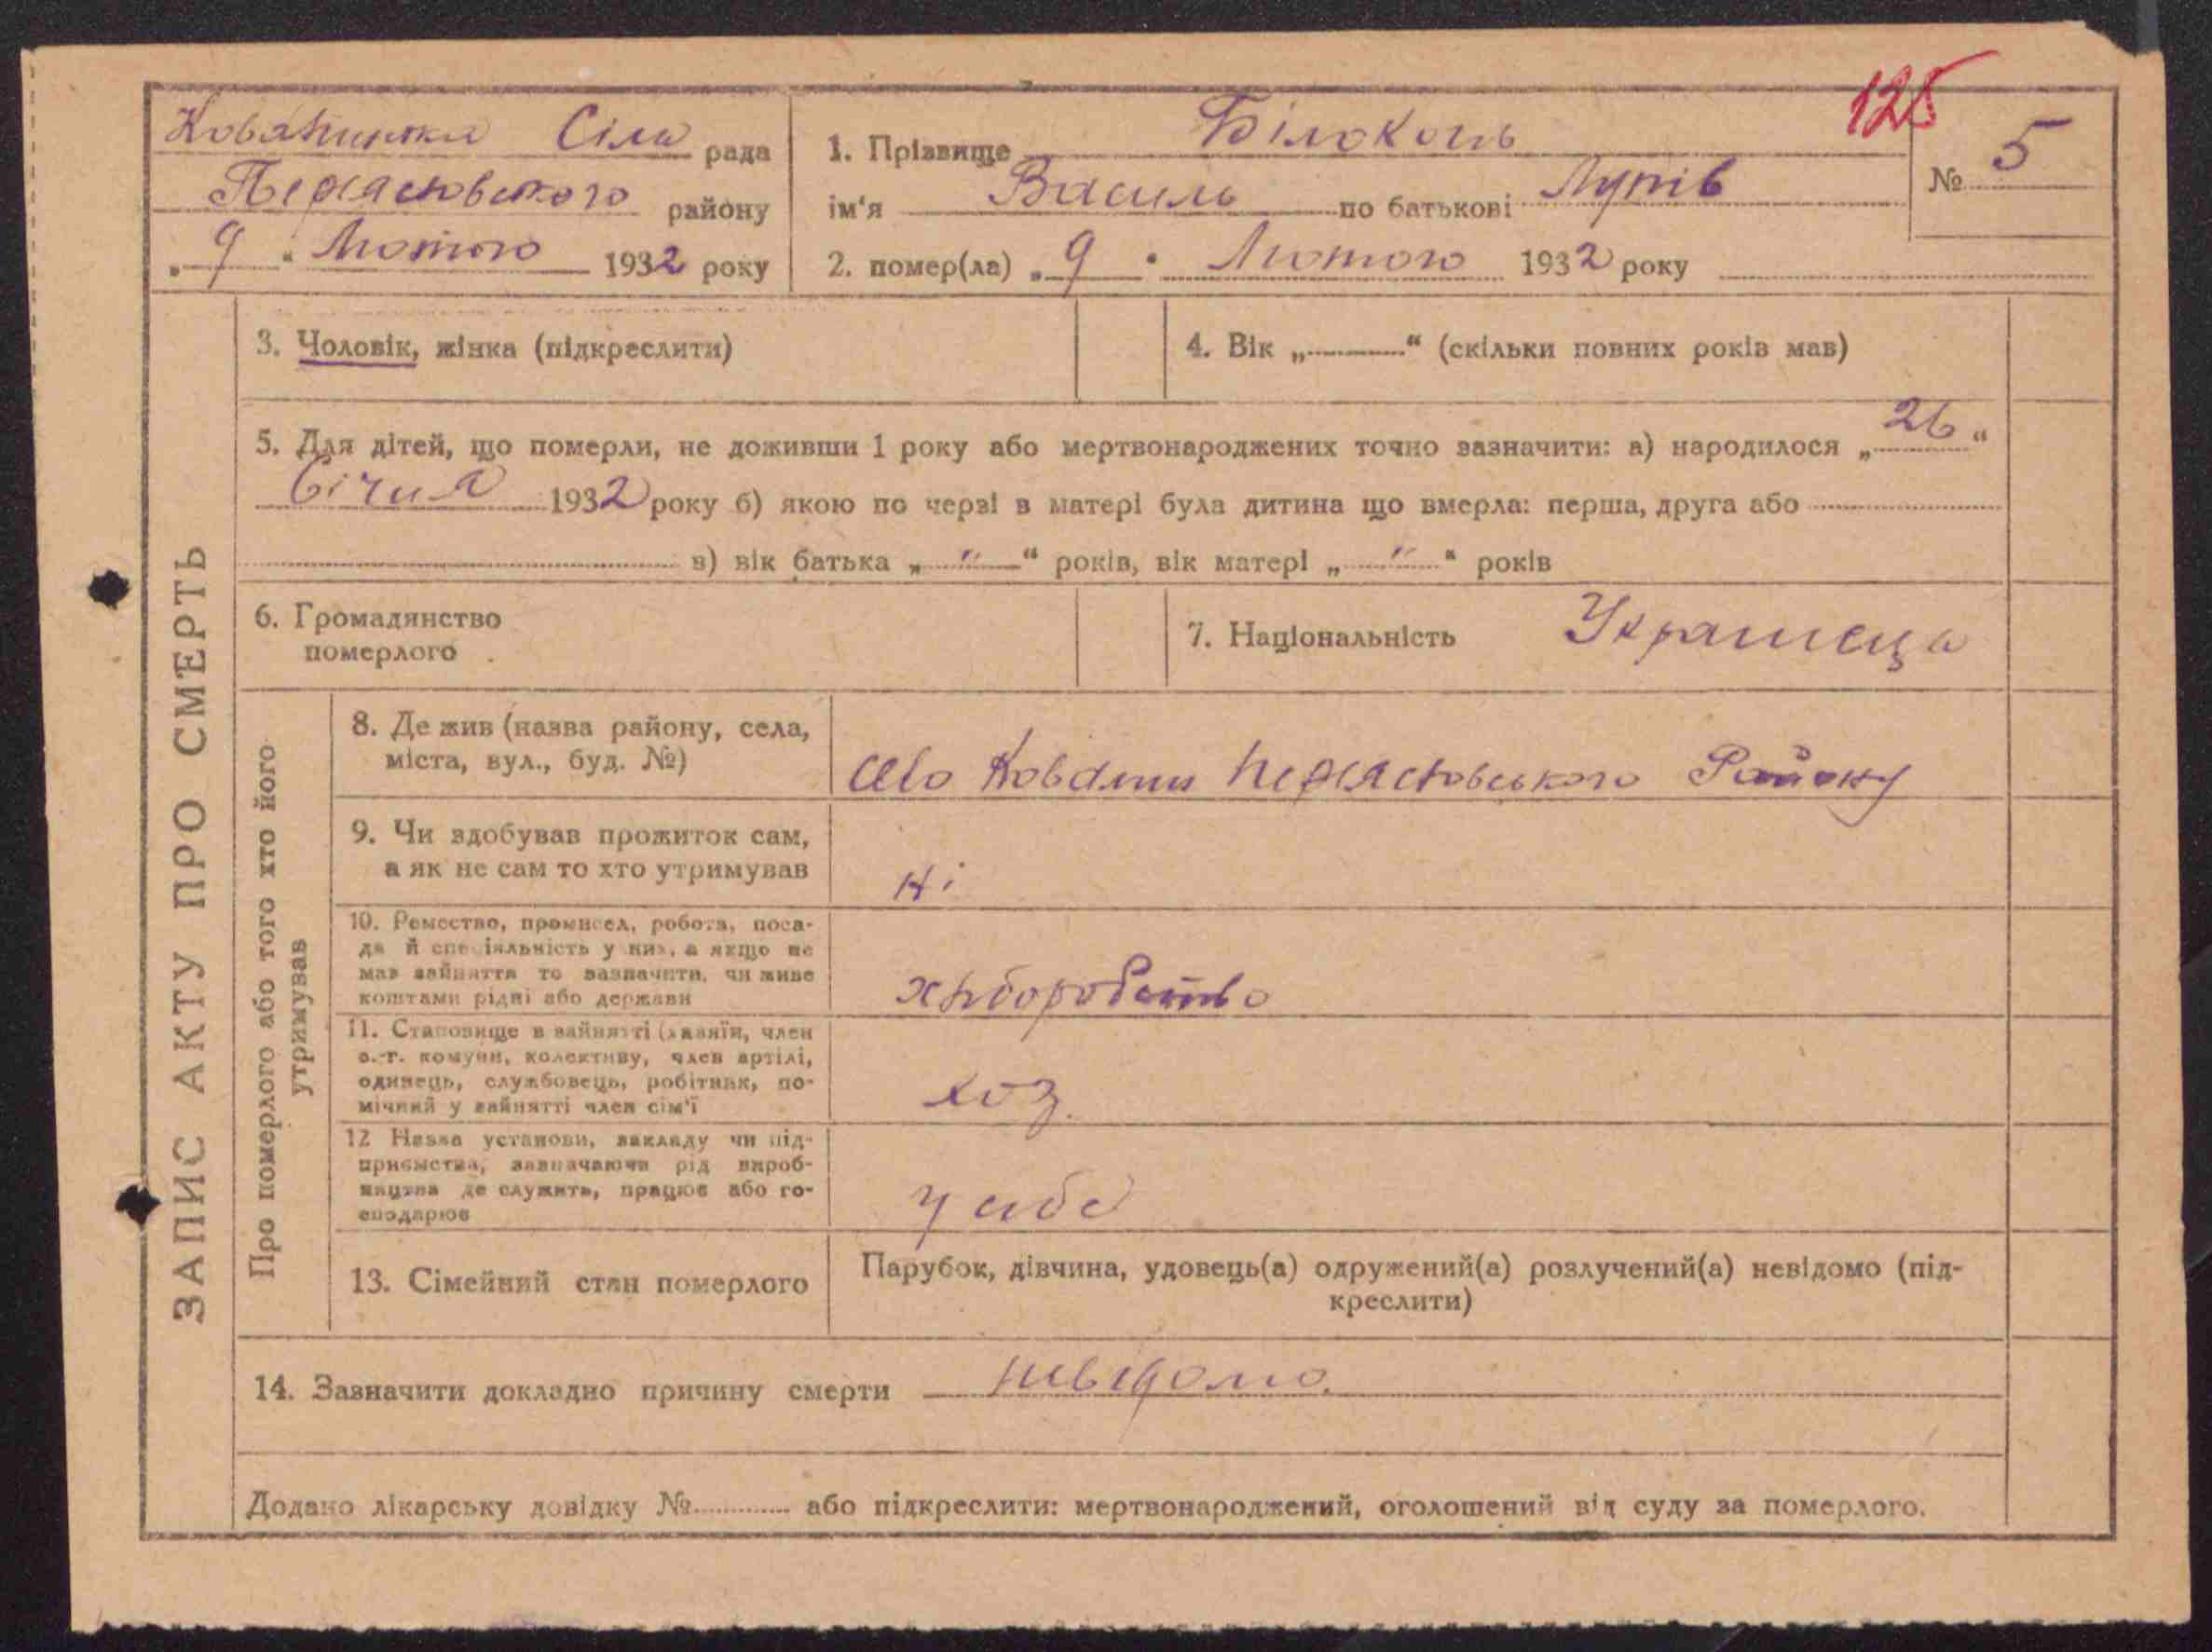 ЗАПИС АКТУ ПРО СМЕРТЬ
125
Ковалинска Сіль рада
Переяславського району
„9“ Лютого 1932 року
1. Прізвище Білоконь
ім'я Василь по батькові
№ 5
2. помер(ла) „9“ Лютого 1932 року
3. Чоловік, жінка (підкреслити)
4. Вік „“ (скільки повних років мав)
5. Для дітей, що померли, не доживши 1 року або мертвонароджених точно зазначити: а) народилося „26“
Січня 1932 року б) якою по черзі в матері була дитина що вмерла: перша, друга або
в) вік батька „ " “ років, вік матері „ " “ років
6. Громадянство
померлого
7. Національність Украінець
Про померлого або того хто його
утримував
8. Де жив (назва району, села,
міста, вул., буд. №)
село Ковалин Району
9. Чи здобував прожиток сам,
а як не сам то хто утримував
ні
10. Ремество, промисел, робота, поса-
да й спеціяльність у них, а якщо не
мав зайняття то зазначити, чи живе
коштами рідні або держави
хліборобство
11. Становище в зайнятті (хазяїн, член
с.-г. комуни, колективу, член артілі,
одинець, службовець, робітник, по-
мічний у зайнятті член сім'ї
хоз.
12 Назва установи, закладу чи під-
приємства, зазначаючи рід вироб-
ництва де служить, працює або го-
сподарює
у себе
13. Сімейний стан померлого
Парубок, дівчина, удовець(а) одружений(а) розлучений(а) невідомо (під-
креслити)
14. Зазначити докладно причину смерти невідомо.
Додано лікарську довідку № або підкреслити: мертвонароджений, оголошений від суду за померлого.